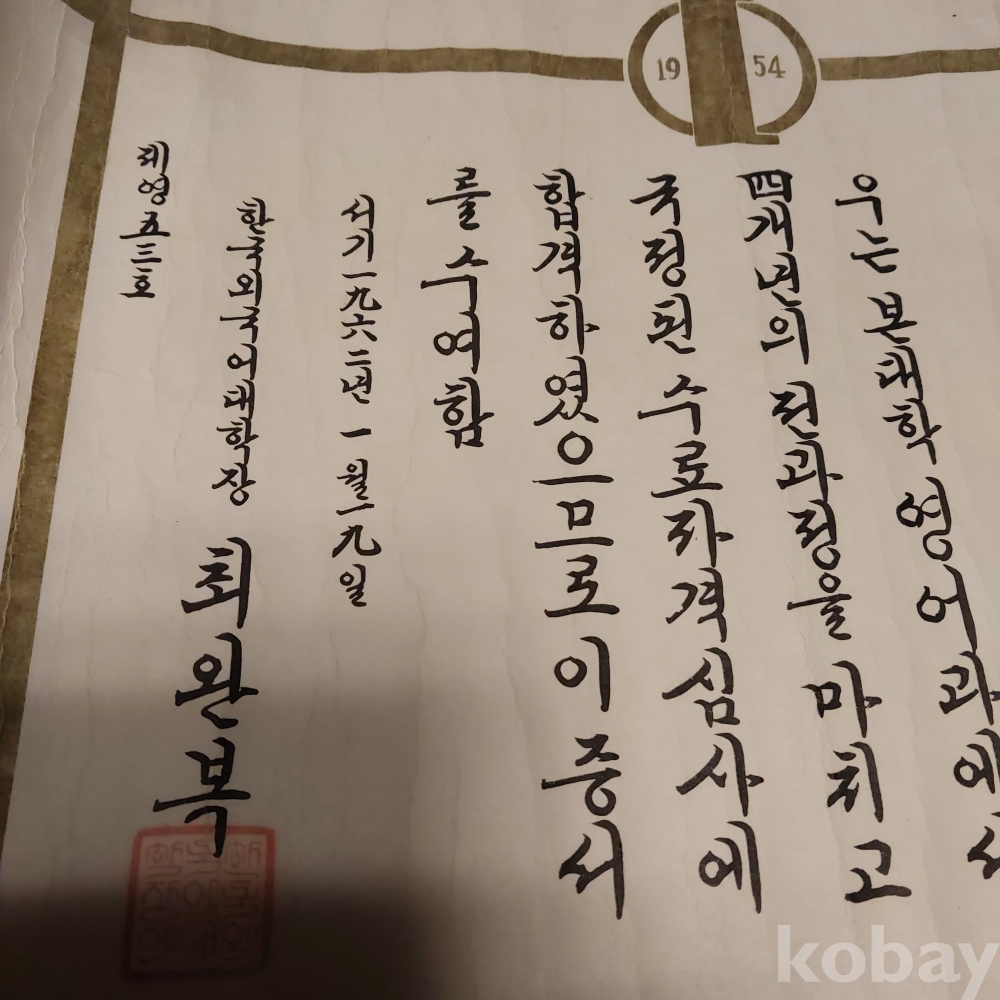 19 54
우는본대학영어과에서
四개년의전과정을마치고
국정된수료자격심사에
합격하였으므로이증서
를수여함
서기一九六二년一월一九일
한국외국어대학장 최완복
제영五三호
kobay